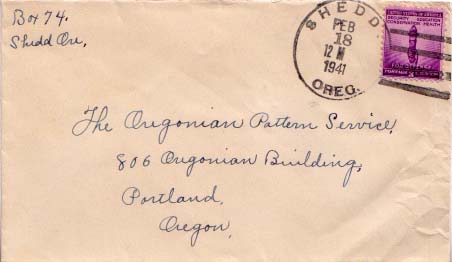 Box 74.
Shedd Ore.
SHEDD
FEB
18
12 M
1941
OREG.
UNITED STATES OF AMERICA
SECURITY EDUCATION
CONSERVATION HEALTH
FOR DEFENSE
The Oregonian Pattern Service,
806 Oregonian Building,
Portland,
Oregon,